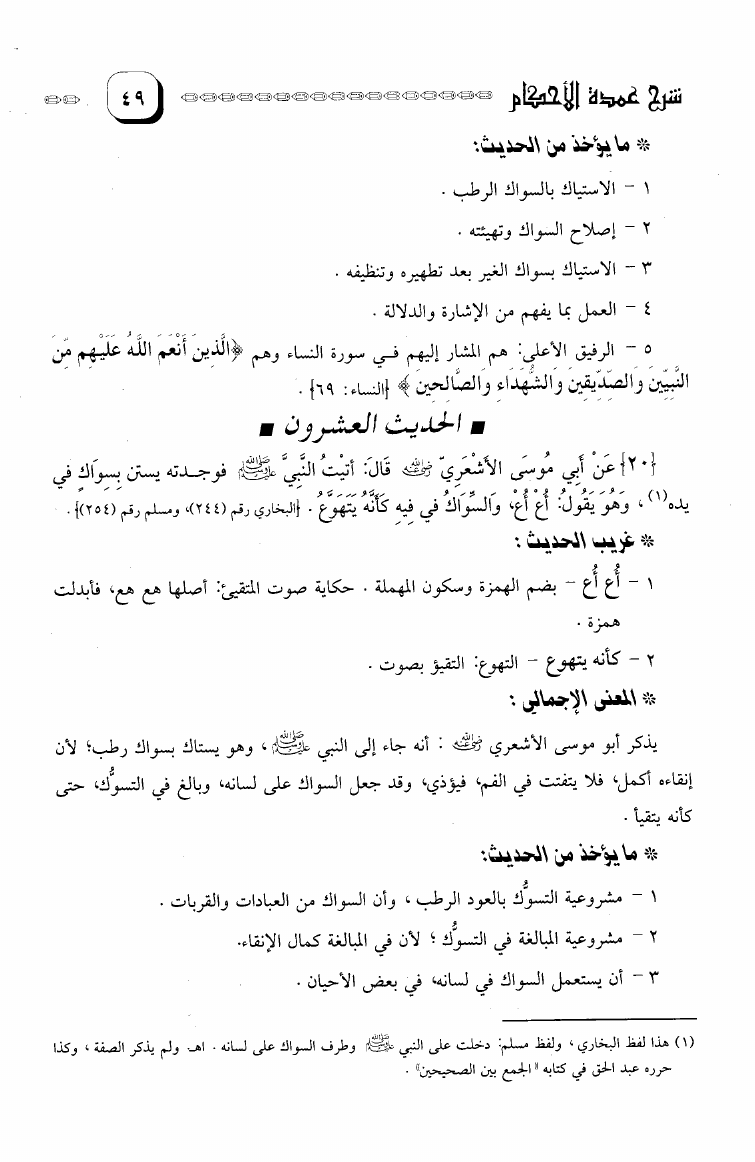 شرح عمدة الأحكام ٤٩
* ما يؤخذ من الحديث:
١ - الاستياك بالسواك الرطب .
٢ - إصلاح السواك وتهيئته .
٣ - الاستياك بسواك الغير بعد تطهيره وتنظيفه .
٤ - العمل بما يفهم من الإشارة والدلالة .
٥ - الرفيق الأعلى: هم المشار إليهم فـي سورة النساء وهم ﴿الَّذِينَ أَنْعَمَ اللَّهُ عَلَيْهِم مِّنَ
النَّبِيِّينَ وَالصِّدِّيقِينَ وَالشُّهَدَاءِ وَالصَّالِحِينَ﴾ {النساء: ٦٩} .
■ الحديث العشرون ■
{٢٠} عَنْ أبي مُوسَى الأشْعَرِيّ رضي الله عنه قَالَ: أتَيْتُ النَّبِيَّ ﷺ فوجـدته يستن بِسِوَاكٍ في
يده(١) ، وَهُوَ يَقُولُ: أُعْ أُعْ، وَالسِّوَاكُ في فِيهِ كَأَنَّهُ يَتَهَوَّعُ . {البخاري رقم (٢٤٤)، ومسلم رقم (٢٥٤)} .
* غريب الحديث :
١ - أُع أُع - بضم الهمزة وسكون المهملة . حكاية صوت المتقيئ: أصلها هع هع، فأبدلت
همزة .
٢ - كأنه يتهوع - التهوع: التقيؤ بصوت .
* المعنى الإجمالي :
يذكر أبو موسى الأشعري رضي الله عنه : أنه جاء إلى النبي ﷺ ، وهو يستاك بسواك رطب؛ لأن
إنقاءه أكمل، فلا يتفتت في الفم، فيؤذي، وقد جعل السواك على لسانه، وبالغ في التسوُّك، حتى
كأنه يتقيأ .
* ما يؤخذ من الحديث:
١ - مشروعية التسوُّك بالعود الرطب ، وأن السواك من العبادات والقربات .
٢ - مشروعية المبالغة في التسوُّك ؛ لأن في المبالغة كمال الإنقاء.
٣ - أن يستعمل السواك في لسانه، في بعض الأحيان .
(١) هذا لفظ البخاري ، ولفظ مسلم: دخلت على النبي ﷺ وطرف السواك على لسانه . اهـ ولم يذكر الصفة ، وكذا
حرره عبد الحق في كتابه "الجمع بين الصحيحين" .